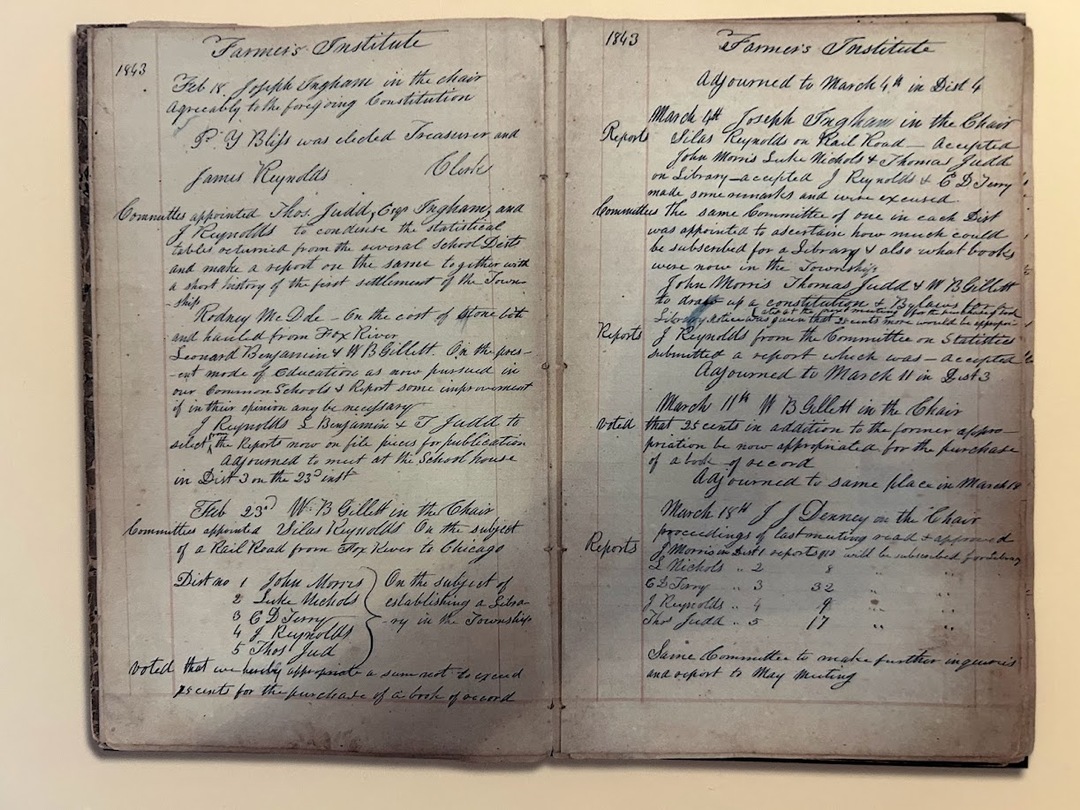 Farmer's Institute
1843
Feb 18. Joseph Ingham in the chair
Agreeably to the foregoing Constitution
P. Y Bliss was elected Treasurer and
James Reynolds Clerk
Committes appointed Thos. Judd, Ingham, and
J Reynolds to condense the statistical
tables returned from the several School Dists
and make a report on the same together with
a short history of the first settlement of the Town-
-ship
Rodney McDole - On the cost of Stone
and hauled from Fox River
Leonard Benjamin & W B Gillett. On the pres-
-ent mode of Education as now pursued in
our Common Schools & Report some improvement
if in their opinion any be necessary
J Reynolds L Benjamin & T Judd to
select the Reports now on file pieces for publication
Adjourned to meet at the School house
in Dist 3 on the 23d inst
Feb 23d W. B Gillett in the Chair
Committees appointed Silas Reynolds On the subject
of a Rail Road from Fox River to Chicago
Dist no 1 John Morris
2 Luke Nichols
3 C D Terry
4 J Reynolds
5 Thos Jud
On the subject of
establishing a Libra-
ry in the Township
voted that we hereby appropriate a sum not to exceed
25 cents for the purchase of a book of record
1843
Farmer's Institute
Adjourned to March 4th in Dist 4
March 4th Joseph Ingham in the Chair
Reports Silas Reynolds on Rail Road - accepted
John Morris Luke Nichols & Thomas Judd
on Library - accepted J Reynolds & C D Terry
made some remarks and were excused
Committees the same Committee of one in each Dist
was appointed to ascertain how much could
be subscribed for a Library & also what books
were now in the Township
John Morris Thomas Judd & W B Gillett
to draft up a constitution & Bylaws for a
Library notice was given that 25 cents more would be appropri-
at the next meeting for the purchase of book
Reports J Reynolds from the Committee on Statistics
submitted a report which was - accepted
Adjourned to March 11 in Dist 3
March 11th W B Gillett in the Chair
voted that 25 cents in addition to the former appro-
priation be now appropriated for the purchase
of a book of record
Adjourned to same place in March 18
March 18th J J Denney on the Chair
proceedings of last meeting read & approved
Reports J Morris in Dist 1 reports $10 will be subscribed for Library
L Nichols " 2 8 " "
C D Terry " 3 32 " "
J Reynolds " 4 9 " "
Thos Judd " 5 17 " "
Same Committee to make further inquiries
and report to May meeting